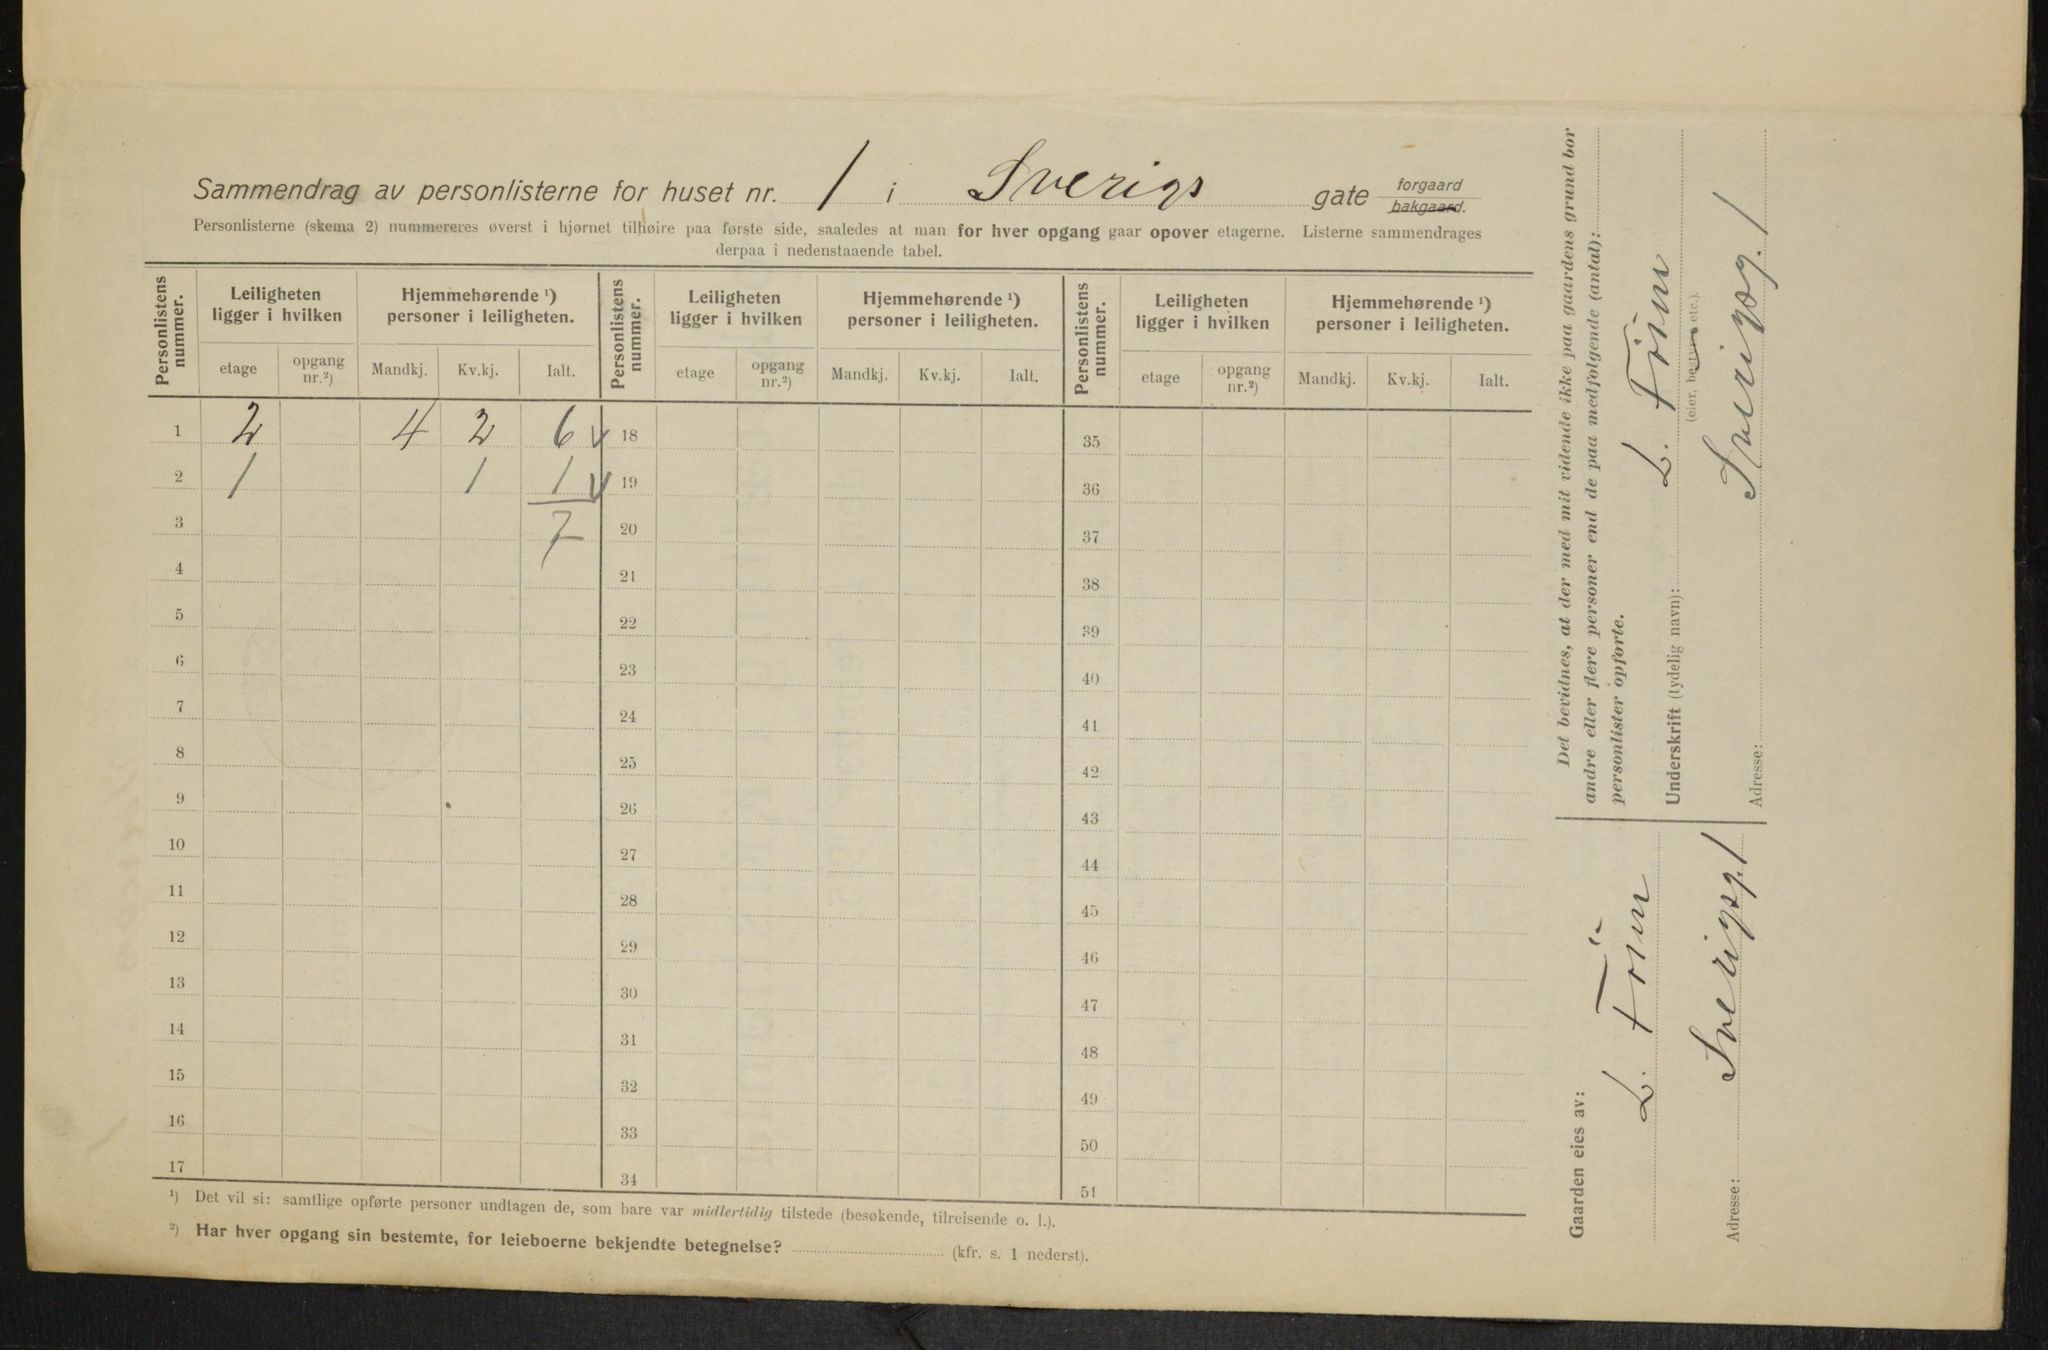 Sammendrag av personlisterne for huset nr. 1 i Sverigs gate forgaard bakgaard.
Personlisterne (skema 2) nummereres øverst i hjørnet tilhøire paa første side, saaledes at man for hver opgang gaar opover etagerne. Listerne sammendrages
derpaa i nedenstaaende tabel.
Personlistens nummer. Leiligheten ligger i hvilken Hjemmehørende ¹) personer i leiligheten. Personlistens nummer. Leiligheten ligger i hvilken Hjemmehørende ¹) personer i leiligheten. Personlistens nummer. Leiligheten ligger i hvilken Hjemmehørende ¹) personer i leiligheten.
etage opgang nr.²) Mandkj. Kv.kj. Ialt. etage opgang nr.²) Mandkj. Kv.kj. Ialt. etage opgang nr.²) Mandkj. Kv.kj. Ialt.
1 2 4 2 6 v 18 35
2 1 1 1 v 19 36
3 7 20 37
4 21 38
5 22 39
6 23 40
7 24 41
8 25 42
9 26 43
10 27 44
11 28 45
12 29 46
13 30 47
14 31 48
15 32 49
16 33 50
17 34 51
¹) Det vil si: samtlige opførte personer undtagen de, som bare var midlertidig tilstede (besøkende, tilreisende o. l.).
²) Har hver opgang sin bestemte, for leieboerne bekjendte betegnelse? (kfr. s. 1 nederst).
Det bevidnes, at der med mit vidende ikke paa gaardens grund bor
andre eller flere personer end de paa medfølgende (antal):
personlister opførte.
Underskrift (tydelig navn): L. Föin
(eier, bestyrer etc.).
Adresse: Sverigsg. 1
Gaarden eies av:
L. Föin
Adresse: Sverigsg. 1